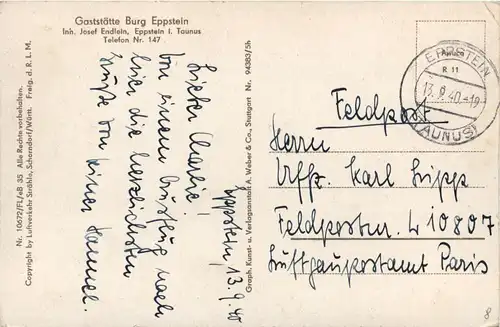 Gaststätte Burg Eppstein
Inh. Josef Endlein, Eppstein i. Taunus
Telefon Nr. 147
Nr. 10672/FL/eB 35 Alle Rechte vorbehalten. Freig. d. R.L.M.
Copyright by Luftverkehr Strähle, Schorndorf/Württ.
Graph. Kunst- u. Verlagsanstalt A. Weber & Co., Stuttgart Nr. 94383/5h
Eppstein, 13.9.40
Lieber
Von einem Ausflug nach
hier die herzlichsten
Grüße von Deiner
EPPSTEIN
R 11
13.9.40.-19
(TAUNUS)
Feldpost
Herrn
Uffz. Karl Lipp
Feldpostnr. L 10807
Luftgaupostamt Paris
8